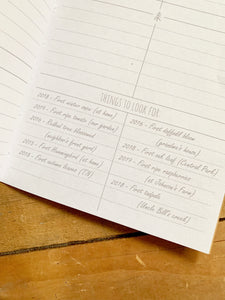 THINGS TO LOOK FOR
2018 - First winter robin (at home)
2019 - First ripe tomato (our garden)
2019 - Redbud tree blossomed
(neighbor's front yard)
2018 - First Hummingbird (at home)
2018 - First autumn leaves (TN)
2019 - First daffodil bloom
(grandma's house)
2018 - First oak leaf (Central Park)
2019 - First ripe raspberries
(at Johnson's Farm)
2018 - First tadpole
(Uncle Bill's creek)